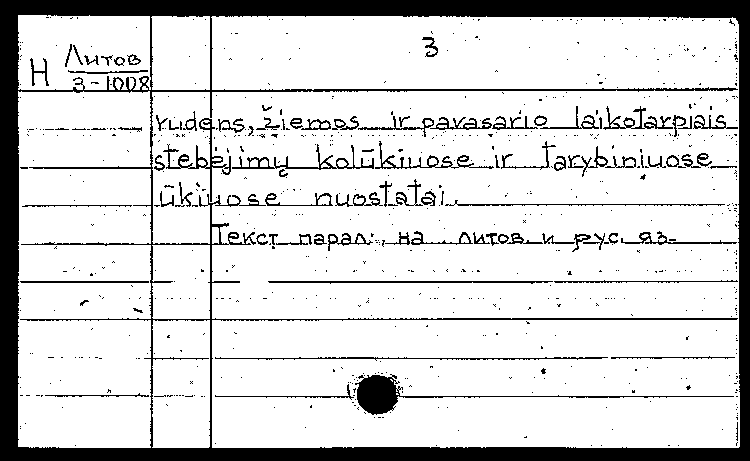 3
Н Литов
3-1008
rudens, žiemos ir pavasario laikotarpiais
stebėjimų kolūkiuose ir tarybiniuose
ūkiuose nuostatai.
Текст парал. на литов. и рус. яз.